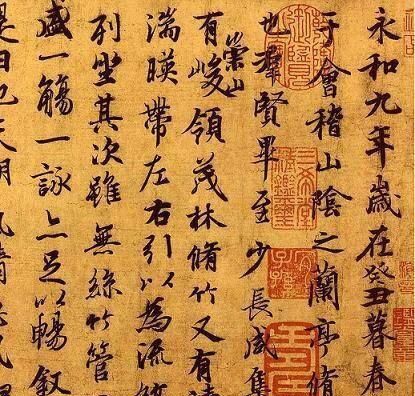 永和九年歲在癸丑暮春
于會稽山陰之蘭亭脩
也羣賢畢至少長咸集
有崇山峻領茂林脩竹又有清
湍暎帶左右引以為流
列坐其次雖無絲竹管
盛一觴一詠亦足以暢敘
是日也天朗氣清
三希堂精鑑璽
宜子孫